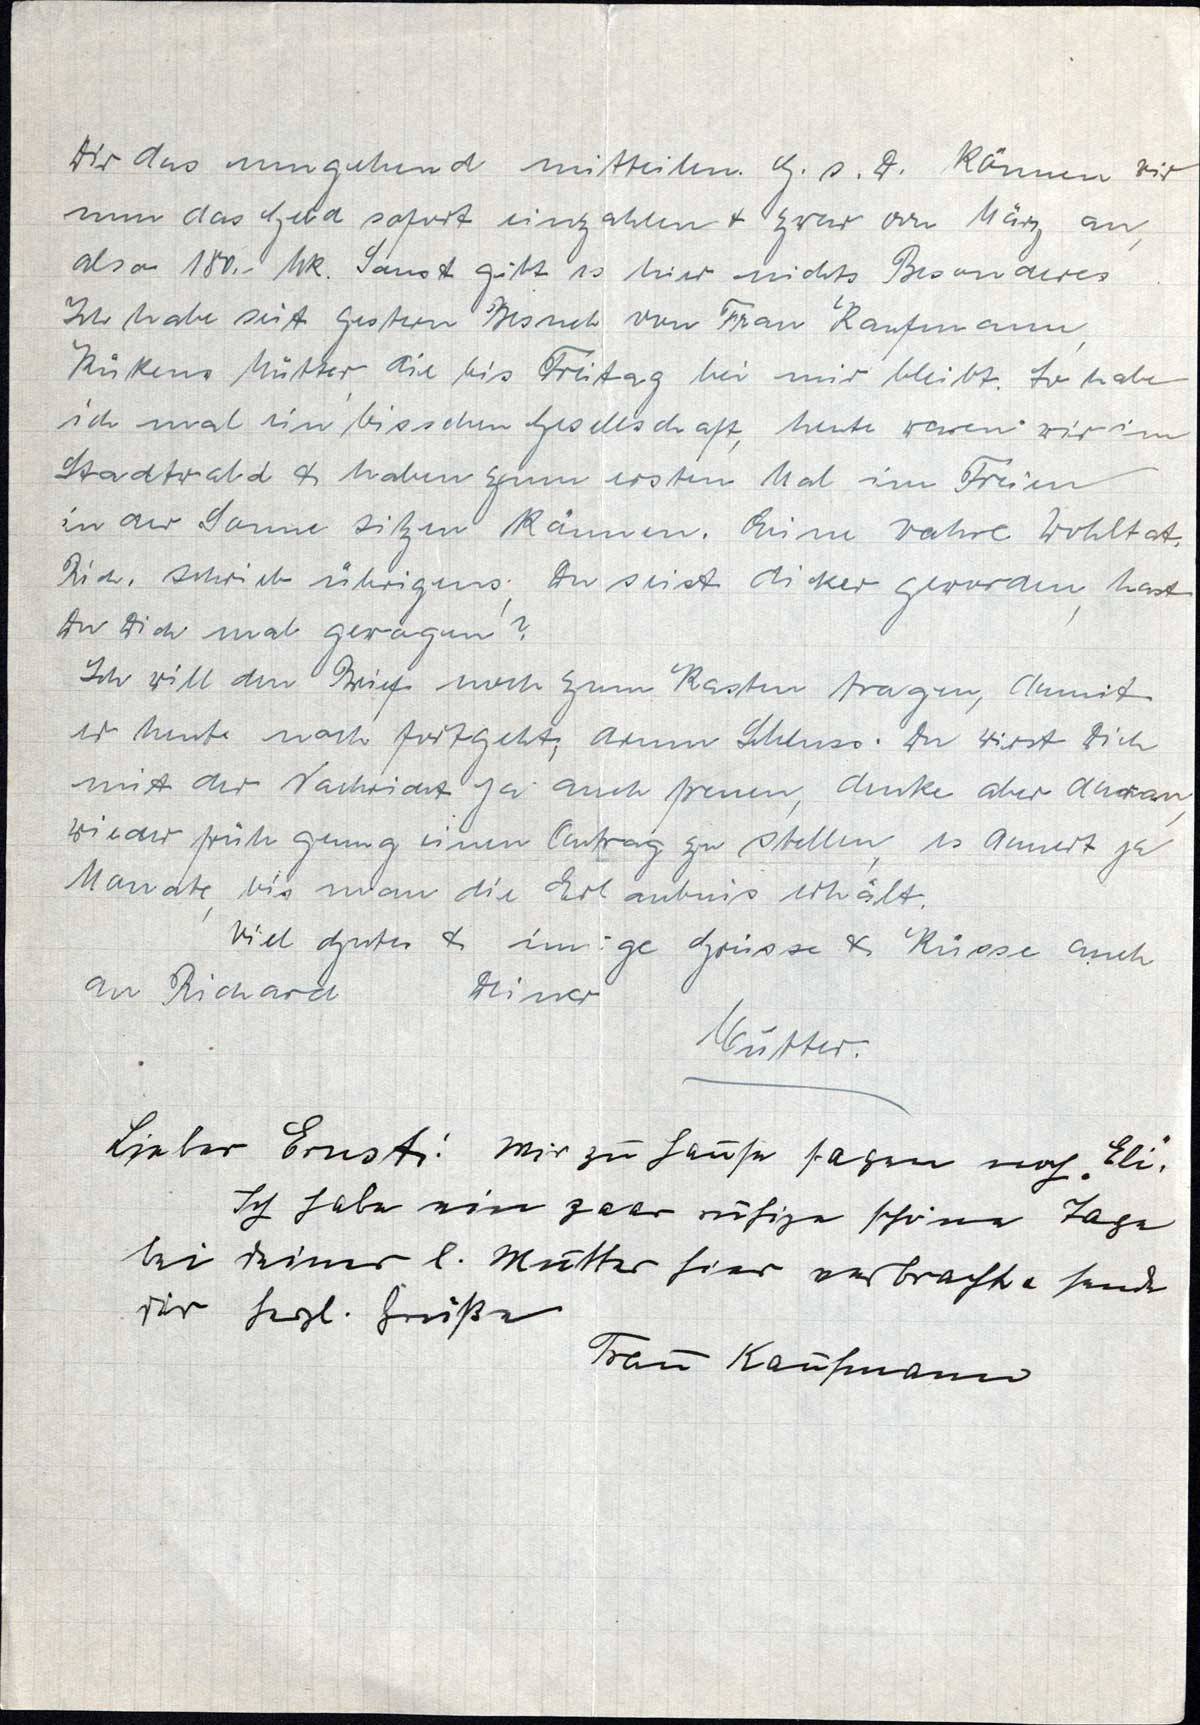 Dir das umgehend mitteilen. G. s. D. können wir
nun das Geld sofort einzahlen & zwar von März an,
also 180.- Mk. Sonst gibt es hier nichts Besonderes
Ich habe seit gestern Besuch von Frau Kaufmann,
Kükens Mutter, die bis Freitag bei mir bleibt. So habe
ich mal ein bisschen Gesellschaft, heute waren wir im
Stadtwald & haben zum ersten Mal im Freien
in der Sonne sitzen können. Eine wahre Wohltat.
Rich. schrieb übrigens, Du seist dicker geworden, hast
Du Dich mal gewogen?
Ich will den Brief noch zum Kasten tragen, damit
er heute noch fortgeht, darum Schluss. Du wirst Dich
mit der Nachricht ja auch freuen, denke aber daran,
wieder früh genug einen Antrag zu stellen, es dauert ja
Monate, bis man die Erlaubnis erhält.
Viel Gutes & innige Grüsse & Küsse auch
an Richard Deiner
Mutter.
Lieber Ernst! Wir zu Hause sagen noch „Eli".
Ich habe ein paar ruhige schöne Tage
bei Deiner l. Mutter hier verbracht & sende
Dir herzl. Grüße
Frau Kaufmann